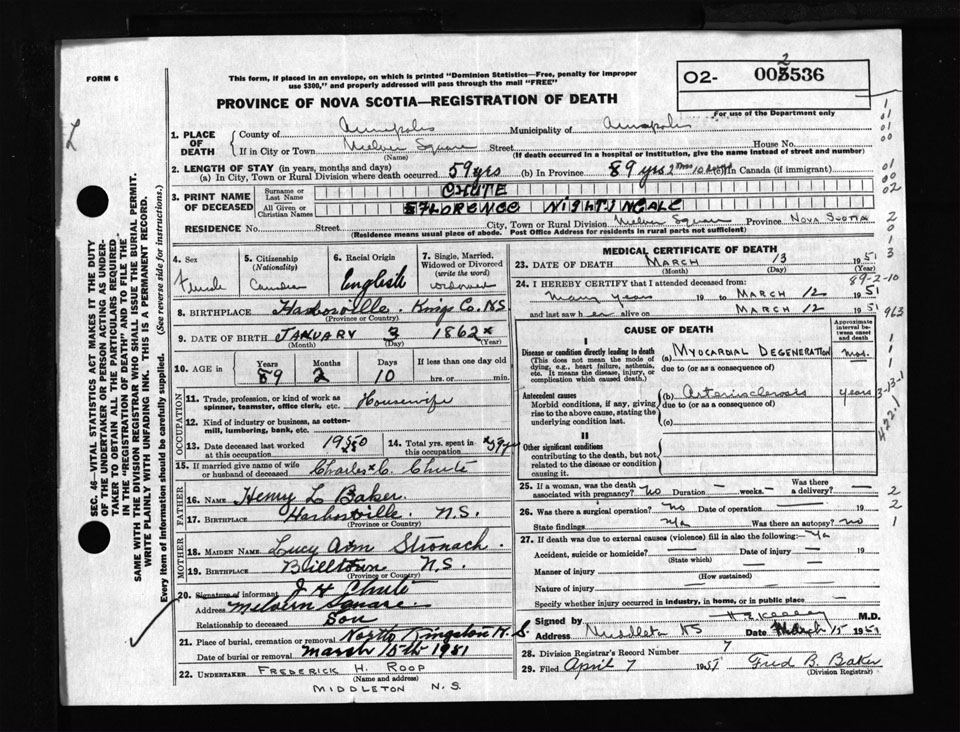 FORM 6
This form, if placed in an envelope, on which is printed "Dominion Statistics—Free, penalty for improper
use $300," and properly addressed will pass through the mail "FREE"
O2- 002536
PROVINCE OF NOVA SCOTIA—REGISTRATION OF DEATH
For use of the Department only
SEC. 46—VITAL STATISTICS ACT MAKES IT THE DUTY
OF THE UNDERTAKER OR PERSON ACTING AS UNDER-
TAKER TO OBTAIN ALL THE PARTICULARS REQUIRED
IN THE "REGISTRATION OF DEATH" AND TO FILE THE
SAME WITH THE DIVISION REGISTRAR WHO SHALL ISSUE THE BURIAL PERMIT.
WRITE PLAINLY WITH UNFADING INK. THIS IS A PERMANENT RECORD.
Every item of information should be carefully supplied. (See reverse side for instructions.)
1. PLACE OF DEATH County of Annapolis Municipality of Annapolis
If in City or Town Melvern Square Street House No.
(Name) (If death occurred in a hospital or institution, give the name instead of street and number)
2. LENGTH OF STAY (in years, months and days)
(a) In City, Town or Rural Division where death occurred 59 yrs (b) In Province 89 yrs 2 mos 10 days (c) In Canada (if immigrant)
3. PRINT NAME OF DECEASED Surname or Last Name CHUTE
All Given or Christian Names FLORENCE NIGHTINGALE
RESIDENCE No. Street City, Town or Rural Division Melvern Square Province NOVA SCOTIA
(Residence means usual place of abode. Post Office Address for residents in rural parts not sufficient)
4. Sex Female
5. Citizenship (Nationality) Canadian
6. Racial Origin English
7. Single, Married, Widowed or Divorced (write the word) widowed
8. BIRTHPLACE Harborville Kings Co. N.S.
(Province or Country)
9. DATE OF BIRTH JANUARY 3 1862
(Month) (Day) (Year)
10. AGE in Years Months Days If less than one day old
89 2 10 hrs. or min.
OCCUPATION
11. Trade, profession, or kind of work as spinner, teamster, office clerk, etc. Housewife
12. Kind of industry or business, as cotton-mill, lumbering, bank, etc.
13. Date deceased last worked at this occupation 1950
14. Total yrs. spent in this occupation
15. If married give name of wife or husband of deceased Charles C. Chute
FATHER
16. NAME Henry L Baker
17. BIRTHPLACE Harborville N.S.
(Province or Country)
MOTHER
18. MAIDEN NAME Lucy Ann Stronach
19. BIRTHPLACE Billtown N.S.
(Province or Country)
20. Signature of informant J H Chute
Address Melvern Square
Relationship to deceased Son
21. Place of burial, cremation or removal North Kingston N.S.
Date of burial or removal March 15th 1951
22. UNDERTAKER FREDERICK H. ROOP
(Name and address)
MIDDLETON N.S.
MEDICAL CERTIFICATE OF DEATH
23. DATE OF DEATH MARCH 13 1951
(Month) (Day) (Year)
24. I HEREBY CERTIFY that I attended deceased from:
many years 19 to MARCH 12 1951
and last saw her alive on MARCH 12 1951
CAUSE OF DEATH
Approximate interval between onset and death
I
Disease or condition directly leading to death (a) MYOCARDIAL DEGENERATION mos.
(This does not mean the mode of dying, e.g., heart failure, asthenia, etc. It means the disease, injury, or complication which caused death.)
due to (or as a consequence of)
Antecedent causes (b) Arteriosclerosis years
Morbid conditions, if any, giving rise to the above cause, stating the underlying condition last.
due to (or as a consequence of)
(c)
II
Other significant conditions contributing to the death, but not related to the disease or condition causing it.
25. If a woman, was the death associated with pregnancy? no Duration — weeks. — Was there a delivery? —
26. Was there a surgical operation? no Date of operation 19
State findings n/a Was there an autopsy? no
27. If death was due to external causes (violence) fill in also the following:— n/a
Accident, suicide or homicide? Date of injury 19
(State which)
Manner of injury
(How sustained)
Nature of injury
Specify whether injury occurred in industry, in home, or in public place
Signed by M.D.
Address Middleton NS Date March 15 1951
28. Division Registrar's Record Number 7
29. Filed April 7 1951 Fred B. Baker
(Division Registrar)
89-2-10
963
422.1